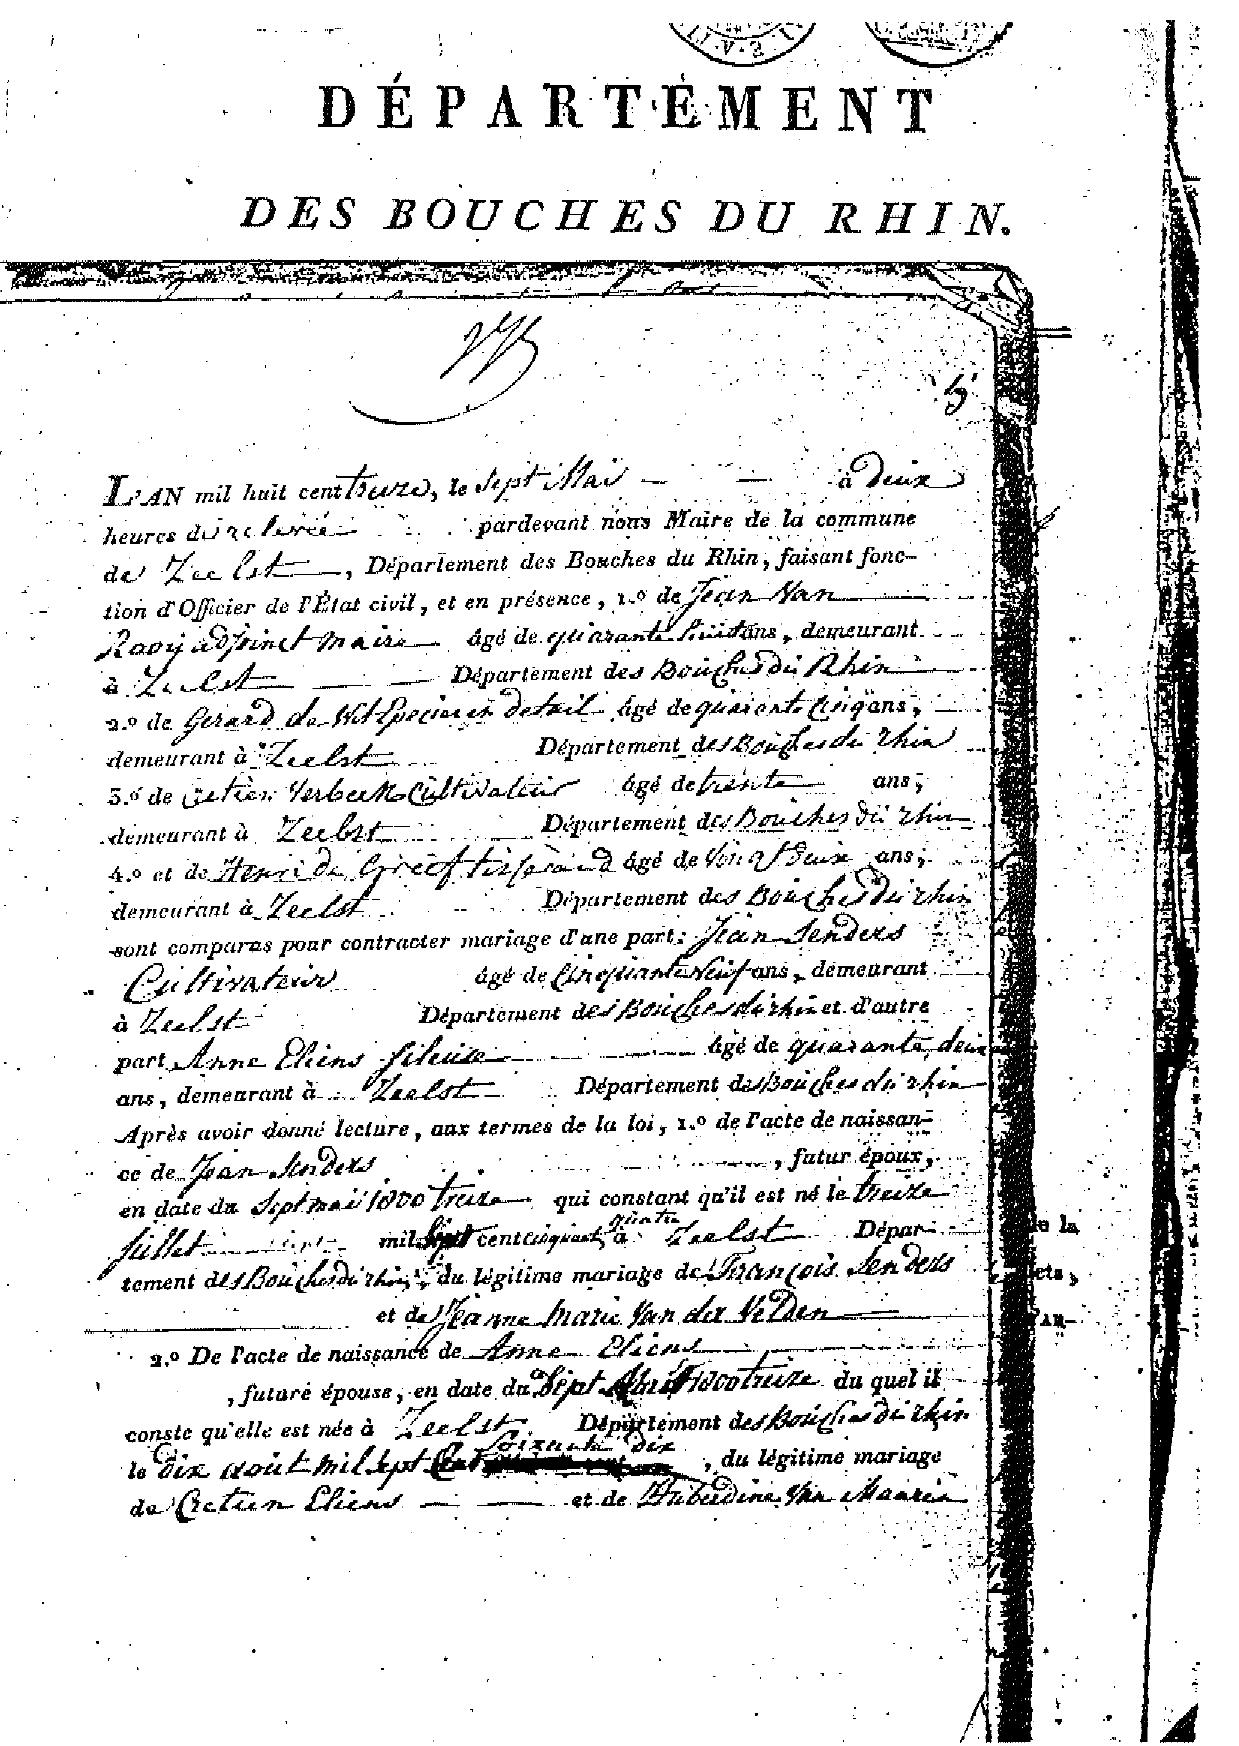 DÉPARTEMENT
DES BOUCHES DU RHIN.
5
L'AN mil huit cent treize, le Sept Mai à deux
heures de relevée pardevant nous Maire de la commune
de Zeelst, Département des Bouches du Rhin, faisant fonc-
tion d'Officier de l'État civil, et en présence, 1.º de Jean Van
Rooy adjoinct maire âgé de quarante huit ans, demeurant
à Zeelst Département des Bouches du Rhin
2.º de Gerard de Wit en detail âgé de quarante cinq ans,
demeurant à Zeelst Département des Bouches du rhin
3.º de Verbeek Cultivateur âgé de trente ans,
demeurant à Zeelst Département des Bouches du rhin
4.º et de Henri de Greef âgé de Vingt deux ans,
demeurant à Zeelst Département des Bouches du rhin
sont comparus pour contracter mariage d'une part: Jean Senders
Cultivateur âgé de Cinquante Neuf ans, demeurant
à Zeelst Département des Bouches du rhin et d'autre
part Anne Eliens fileuse âgé de quarante deux
ans, demeurant à Zeelst Département des Bouches du rhin
Après avoir donné lecture, aux termes de la loi, 1.º de l'acte de naissan-
ce de Jean Senders, futur époux,
en date du Sept mai 1800 treize qui constant qu'il est né le treize
Juillet mil Sept cent cinquante quatre à Zeelst Dépar-
tement des Bouches du rhin, du légitime mariage de François Senders
et de Jeanne Marie Van der Velden
2.º De l'acte de naissance de Anne Eliens
, future épouse, en date du Sept 1800 treize du quel il
conste qu'elle est née à Zeelst Département des Bouches du rhin
le dix août mil Sept Cent soixante dix, du légitime mariage
de Eliens et de Huburdine Van Maaren
e la
cts,
AN-